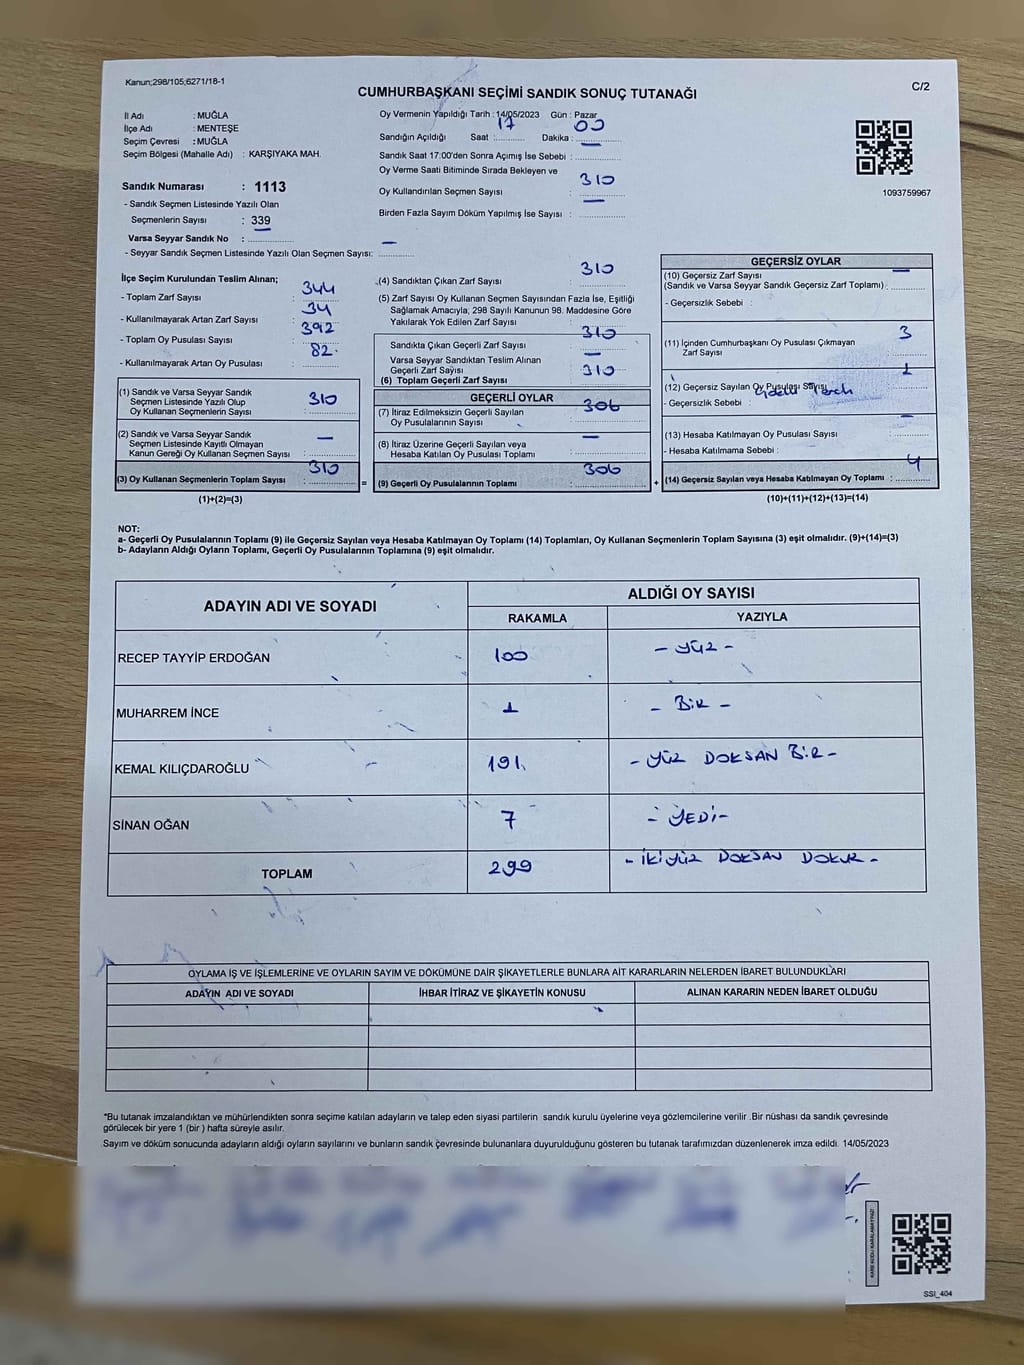 Kanun;298/105;6271/18-1
C/2
CUMHURBAŞKANI SEÇİMİ SANDIK SONUÇ TUTANAĞI
İl Adı : MUĞLA
İlçe Adı : MENTEŞE
Seçim Çevresi : MUĞLA
Seçim Bölgesi (Mahalle Adı) : KARŞIYAKA MAH.
Sandık Numarası : 1113
- Sandık Seçmen Listesinde Yazılı Olan
Seçmenlerin Sayısı : 339
Varsa Seyyar Sandık No : —
- Seyyar Sandık Seçmen Listesinde Yazılı Olan Seçmen Sayısı: —
Oy Vermenin Yapıldığı Tarih : 14/05/2023 Gün : Pazar
Sandığın Açıldığı Saat : 17 Dakika : 00
Sandık Saat 17:00'den Sonra Açımış İse Sebebi : —
Oy Verme Saati Bitiminde Sırada Bekleyen ve
Oy Kullandırılan Seçmen Sayısı : 310
Birden Fazla Sayım Döküm Yapılmış İse Sayısı : —
1093759967
İlçe Seçim Kurulundan Teslim Alınan;
- Toplam Zarf Sayısı : 344
- Kullanılmayarak Artan Zarf Sayısı : 34
- Toplam Oy Pusulası Sayısı : 392
- Kullanılmayarak Artan Oy Pusulası : 82
(1) Sandık ve Varsa Seyyar Sandık
Seçmen Listesinde Yazılı Olup
Oy Kullanan Seçmenlerin Sayısı : 310
(2) Sandık ve Varsa Seyyar Sandık
Seçmen Listesinde Kayıtlı Olmayan
Kanun Gereği Oy Kullanan Seçmen Sayısı : —
(3) Oy Kullanan Seçmenlerin Toplam Sayısı : 310
(1)+(2)=(3)
(4) Sandıktan Çıkan Zarf Sayısı : 310
(5) Zarf Sayısı Oy Kullanan Seçmen Sayısından Fazla İse, Eşitliği
Sağlamak Amacıyla; 298 Sayılı Kanunun 98. Maddesine Göre
Yakılarak Yok Edilen Zarf Sayısı :
Sandıkta Çıkan Geçerli Zarf Sayısı : 310
Varsa Seyyar Sandıktan Teslim Alınan
Geçerli Zarf Sayısı : —
(6) Toplam Geçerli Zarf Sayısı : 310
GEÇERLİ OYLAR
(7) İtiraz Edilmeksizin Geçerli Sayılan
Oy Pusulalarının Sayısı : 306
(8) İtiraz Üzerine Geçerli Sayılan veya
Hesaba Katılan Oy Pusulası Toplamı : —
= (9) Geçerli Oy Pusulalarının Toplamı : 306
GEÇERSİZ OYLAR
(10) Geçersiz Zarf Sayısı
(Sandık ve Varsa Seyyar Sandık Geçersiz Zarf Toplamı) : —
- Geçersizlik Sebebi :
(11) İçinden Cumhurbaşkanı Oy Pusulası Çıkmayan
Zarf Sayısı : 3
(12) Geçersiz Sayılan Oy Pusulası Sayısı : 1
- Geçersizlik Sebebi :
(13) Hesaba Katılmayan Oy Pusulası Sayısı : —
- Hesaba Katılmama Sebebi :
+ (14) Geçersiz Sayılan veya Hesaba Katılmayan Oy Toplamı : 4
(10)+(11)+(12)+(13)=(14)
NOT:
a- Geçerli Oy Pusulalarının Toplamı (9) ile Geçersiz Sayılan veya Hesaba Katılmayan Oy Toplamı (14) Toplamları, Oy Kullanan Seçmenlerin Toplam Sayısına (3) eşit olmalıdır. (9)+(14)=(3)
b- Adayların Aldığı Oyların Toplamı, Geçerli Oy Pusulalarının Toplamına (9) eşit olmalıdır.
ADAYIN ADI VE SOYADI ALDIĞI OY SAYISI
RAKAMLA YAZIYLA
RECEP TAYYİP ERDOĞAN 100 - YÜZ -
MUHARREM İNCE 1 - BİR -
KEMAL KILIÇDAROĞLU 191 - YÜZ DOKSAN BİR -
SİNAN OĞAN 7 - YEDİ -
TOPLAM 299 - İKİYÜZ DOKSAN DOKUZ -
OYLAMA İŞ VE İŞLEMLERİNE VE OYLARIN SAYIM VE DÖKÜMÜNE DAİR ŞİKAYETLERLE BUNLARA AİT KARARLARIN NELERDEN İBARET BULUNDUKLARI
ADAYIN ADI VE SOYADI İHBAR İTİRAZ VE ŞİKAYETİN KONUSU ALINAN KARARIN NEDEN İBARET OLDUĞU
*Bu tutanak imzalandıktan ve mühürlendikten sonra seçime katılan adayların ve talep eden siyasi partilerin sandık kurulu üyelerine veya gözlemcilerine verilir .Bir nüshası da sandık çevresinde
görülecek bir yere 1 (bir ) hafta süreyle asılır.
Sayım ve döküm sonucunda adayların aldığı oyların sayılarını ve bunların sandık çevresinde bulunanlara duyurulduğunu gösteren bu tutanak tarafımızdan düzenlenerek imza edildi. 14/05/2023
KARE KODU KARALAMAYINIZ!
SSI_404